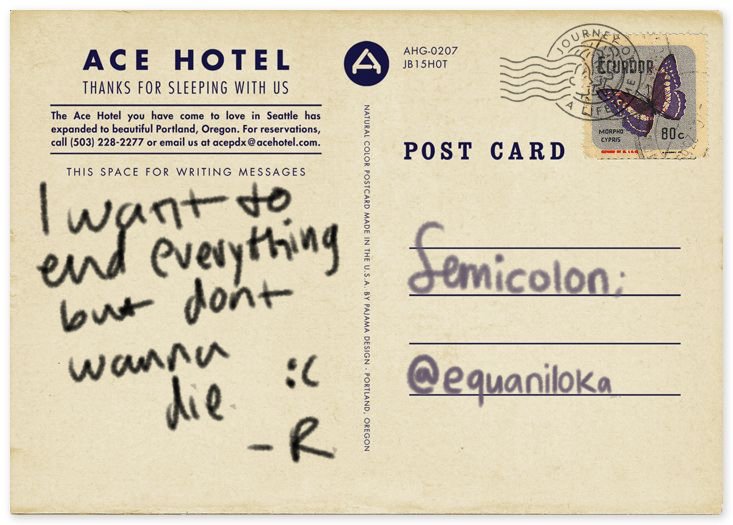 ACE HOTEL
THANKS FOR SLEEPING WITH US
The Ace Hotel you have come to love in Seattle has
expanded to beautiful Portland, Oregon. For reservations,
call (503) 228-2277 or email us at acepdx@acehotel.com.
THIS SPACE FOR WRITING MESSAGES
I want to
end everything
but dont
wanna
die. :c
- R
NATURAL COLOR POSTCARD MADE IN THE U.S.A. BY PAJAMA DESIGN · PORTLAND, OREGON
A
AHG-0207
JB15H0T
JOURNEY OF
A LIFETIME
ECUADOR
MORPHO
CYPRIS
80c
POST CARD
Semicolon;
@equaniloka